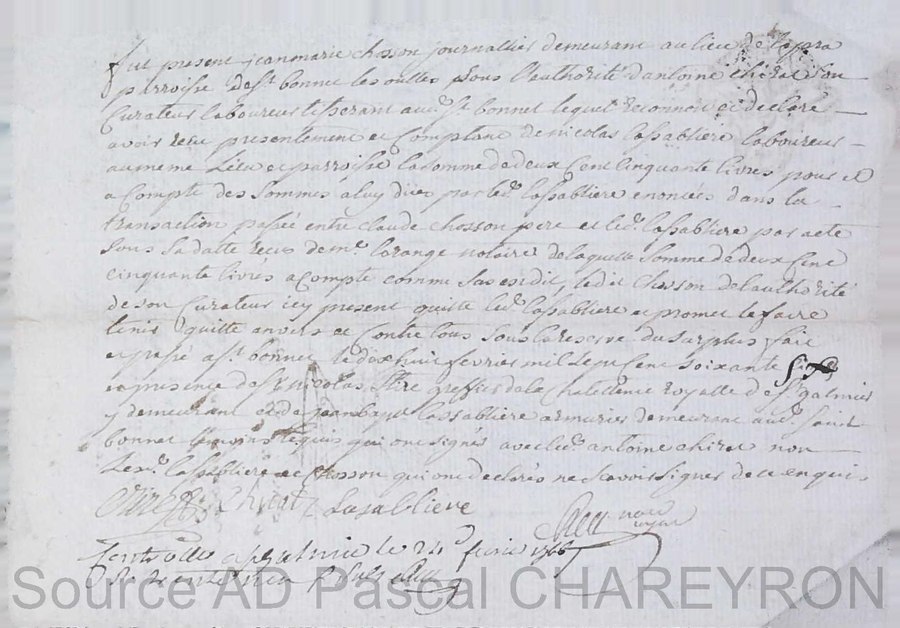 fut present jeanmarie chosson journallier demeurant au lieu de
parroisse de st bonnet les oulles sous l'authorité d'antoine chirat son
Curateur laboureur tisserant aud. st bonnet lequel reconnoit et declaré
avoir reçu presentement et Comptant de nicolas lasabliere laboureur
au meme Lieu et parroisse la somme de deux Cent Cinquante livres pour et
a Compte des sommes a luy dues par led. lasabliere enoncées dans la
transaction passée entre claude chosson pere et led. lasabliere par acte
sous sa datte recus de me. larange notaire de laquelle somme de deux Cent
cinquante livres a compte comme sus est dit, ledit chosson de l'authorité
de son Curateur icy present quitte led. lasabliere et promet le faire
tenir quitte envers et Contre tous sous la reserve du surplus fait
et passé a st bonnet le dix huit fevrier mil sept cent soixante six
en presence de sr. nicolas greffier de la Chatellenie royalle de st galmier
y demeurant et de jean bapt. lassabliere armurier demeurant aud. saint
bonnet temoins requis qui ont signés avec led. antoine chirat non
led. lasabliere et chosson qui ont declarés ne scavoir signer de ce enquis
chirat Lasabliere
notre royal
Controllé a st galmier le 24e fevrier 1766
Source AD Pascal CHAREYRON